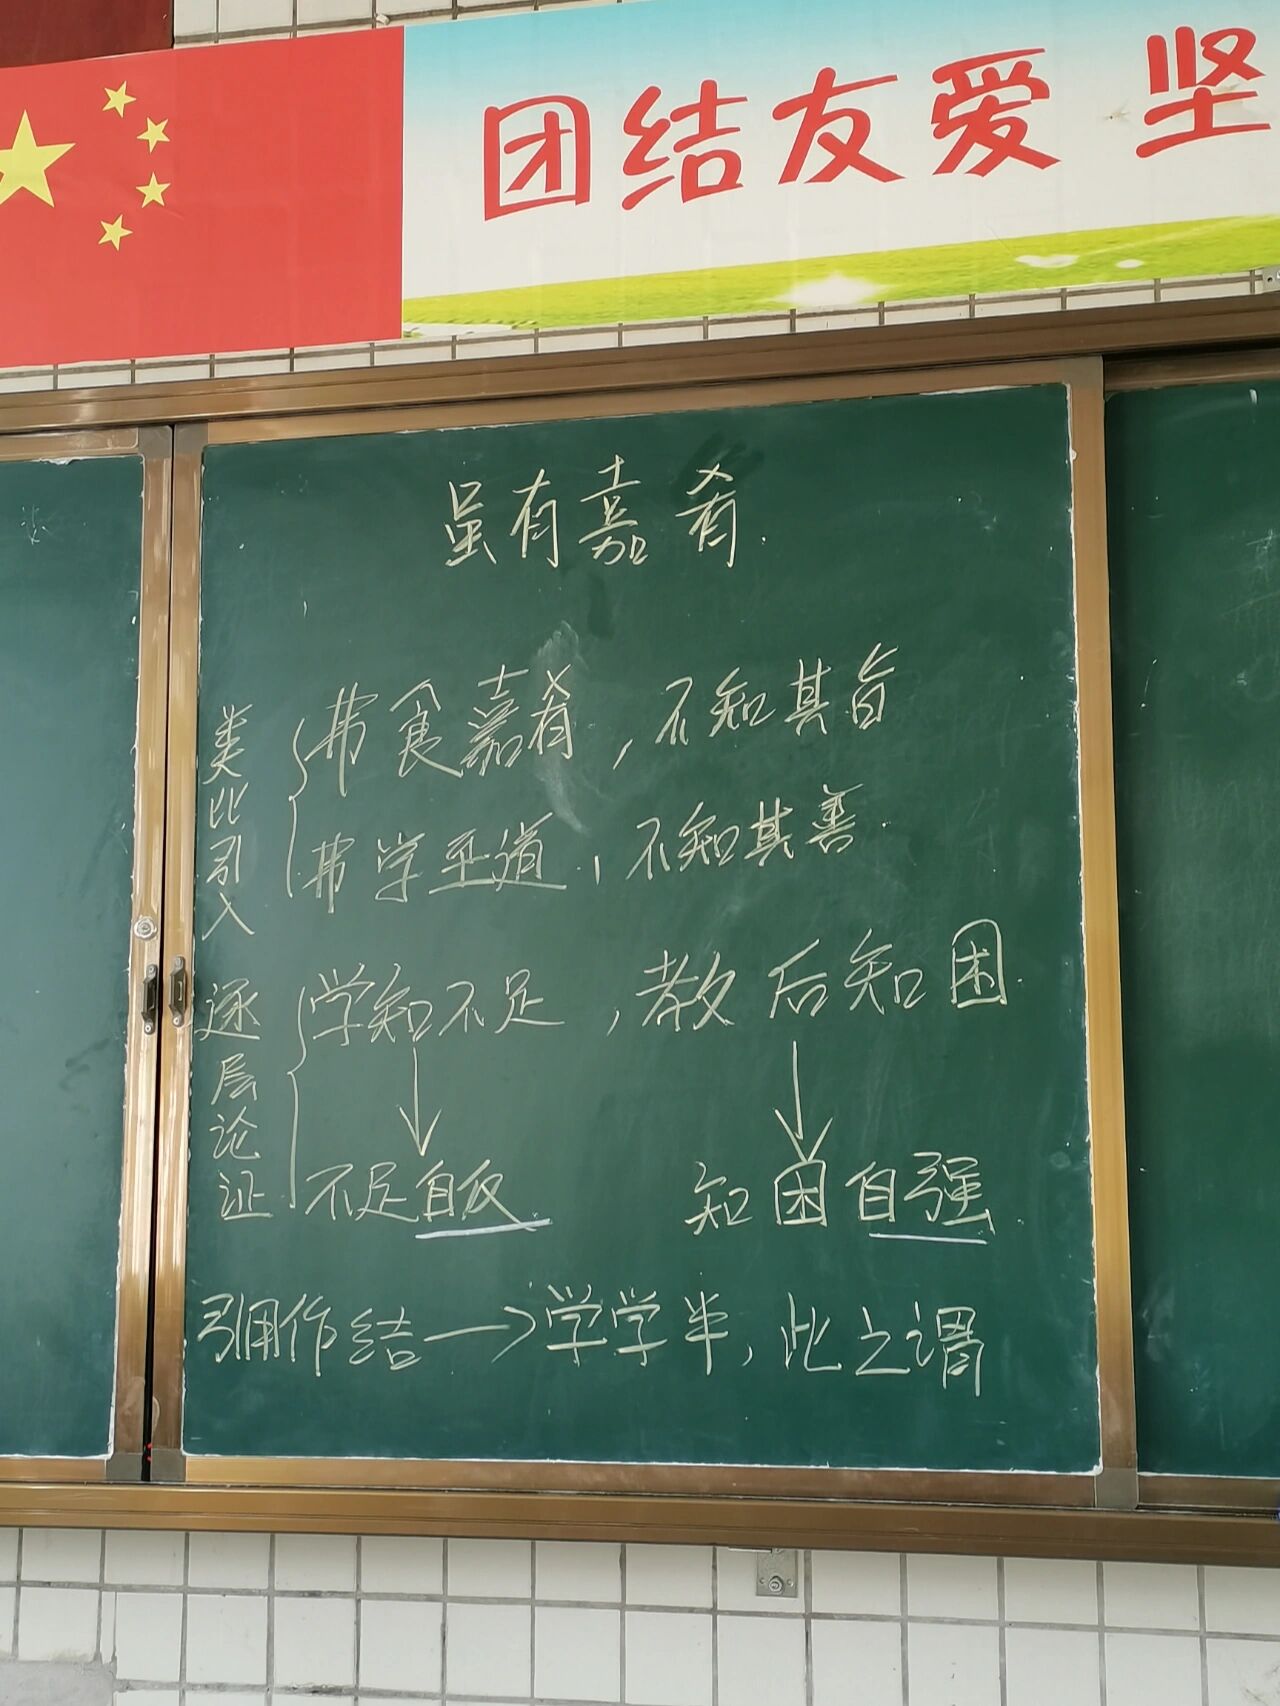 团结友爱 坚
虽有嘉肴.
类比引入
弗食嘉肴,不知其旨
弗学至道,不知其善.
逐层论证
学知不足,教后知困.
不足自反
知困自强.
引用作结→学学半,此之谓